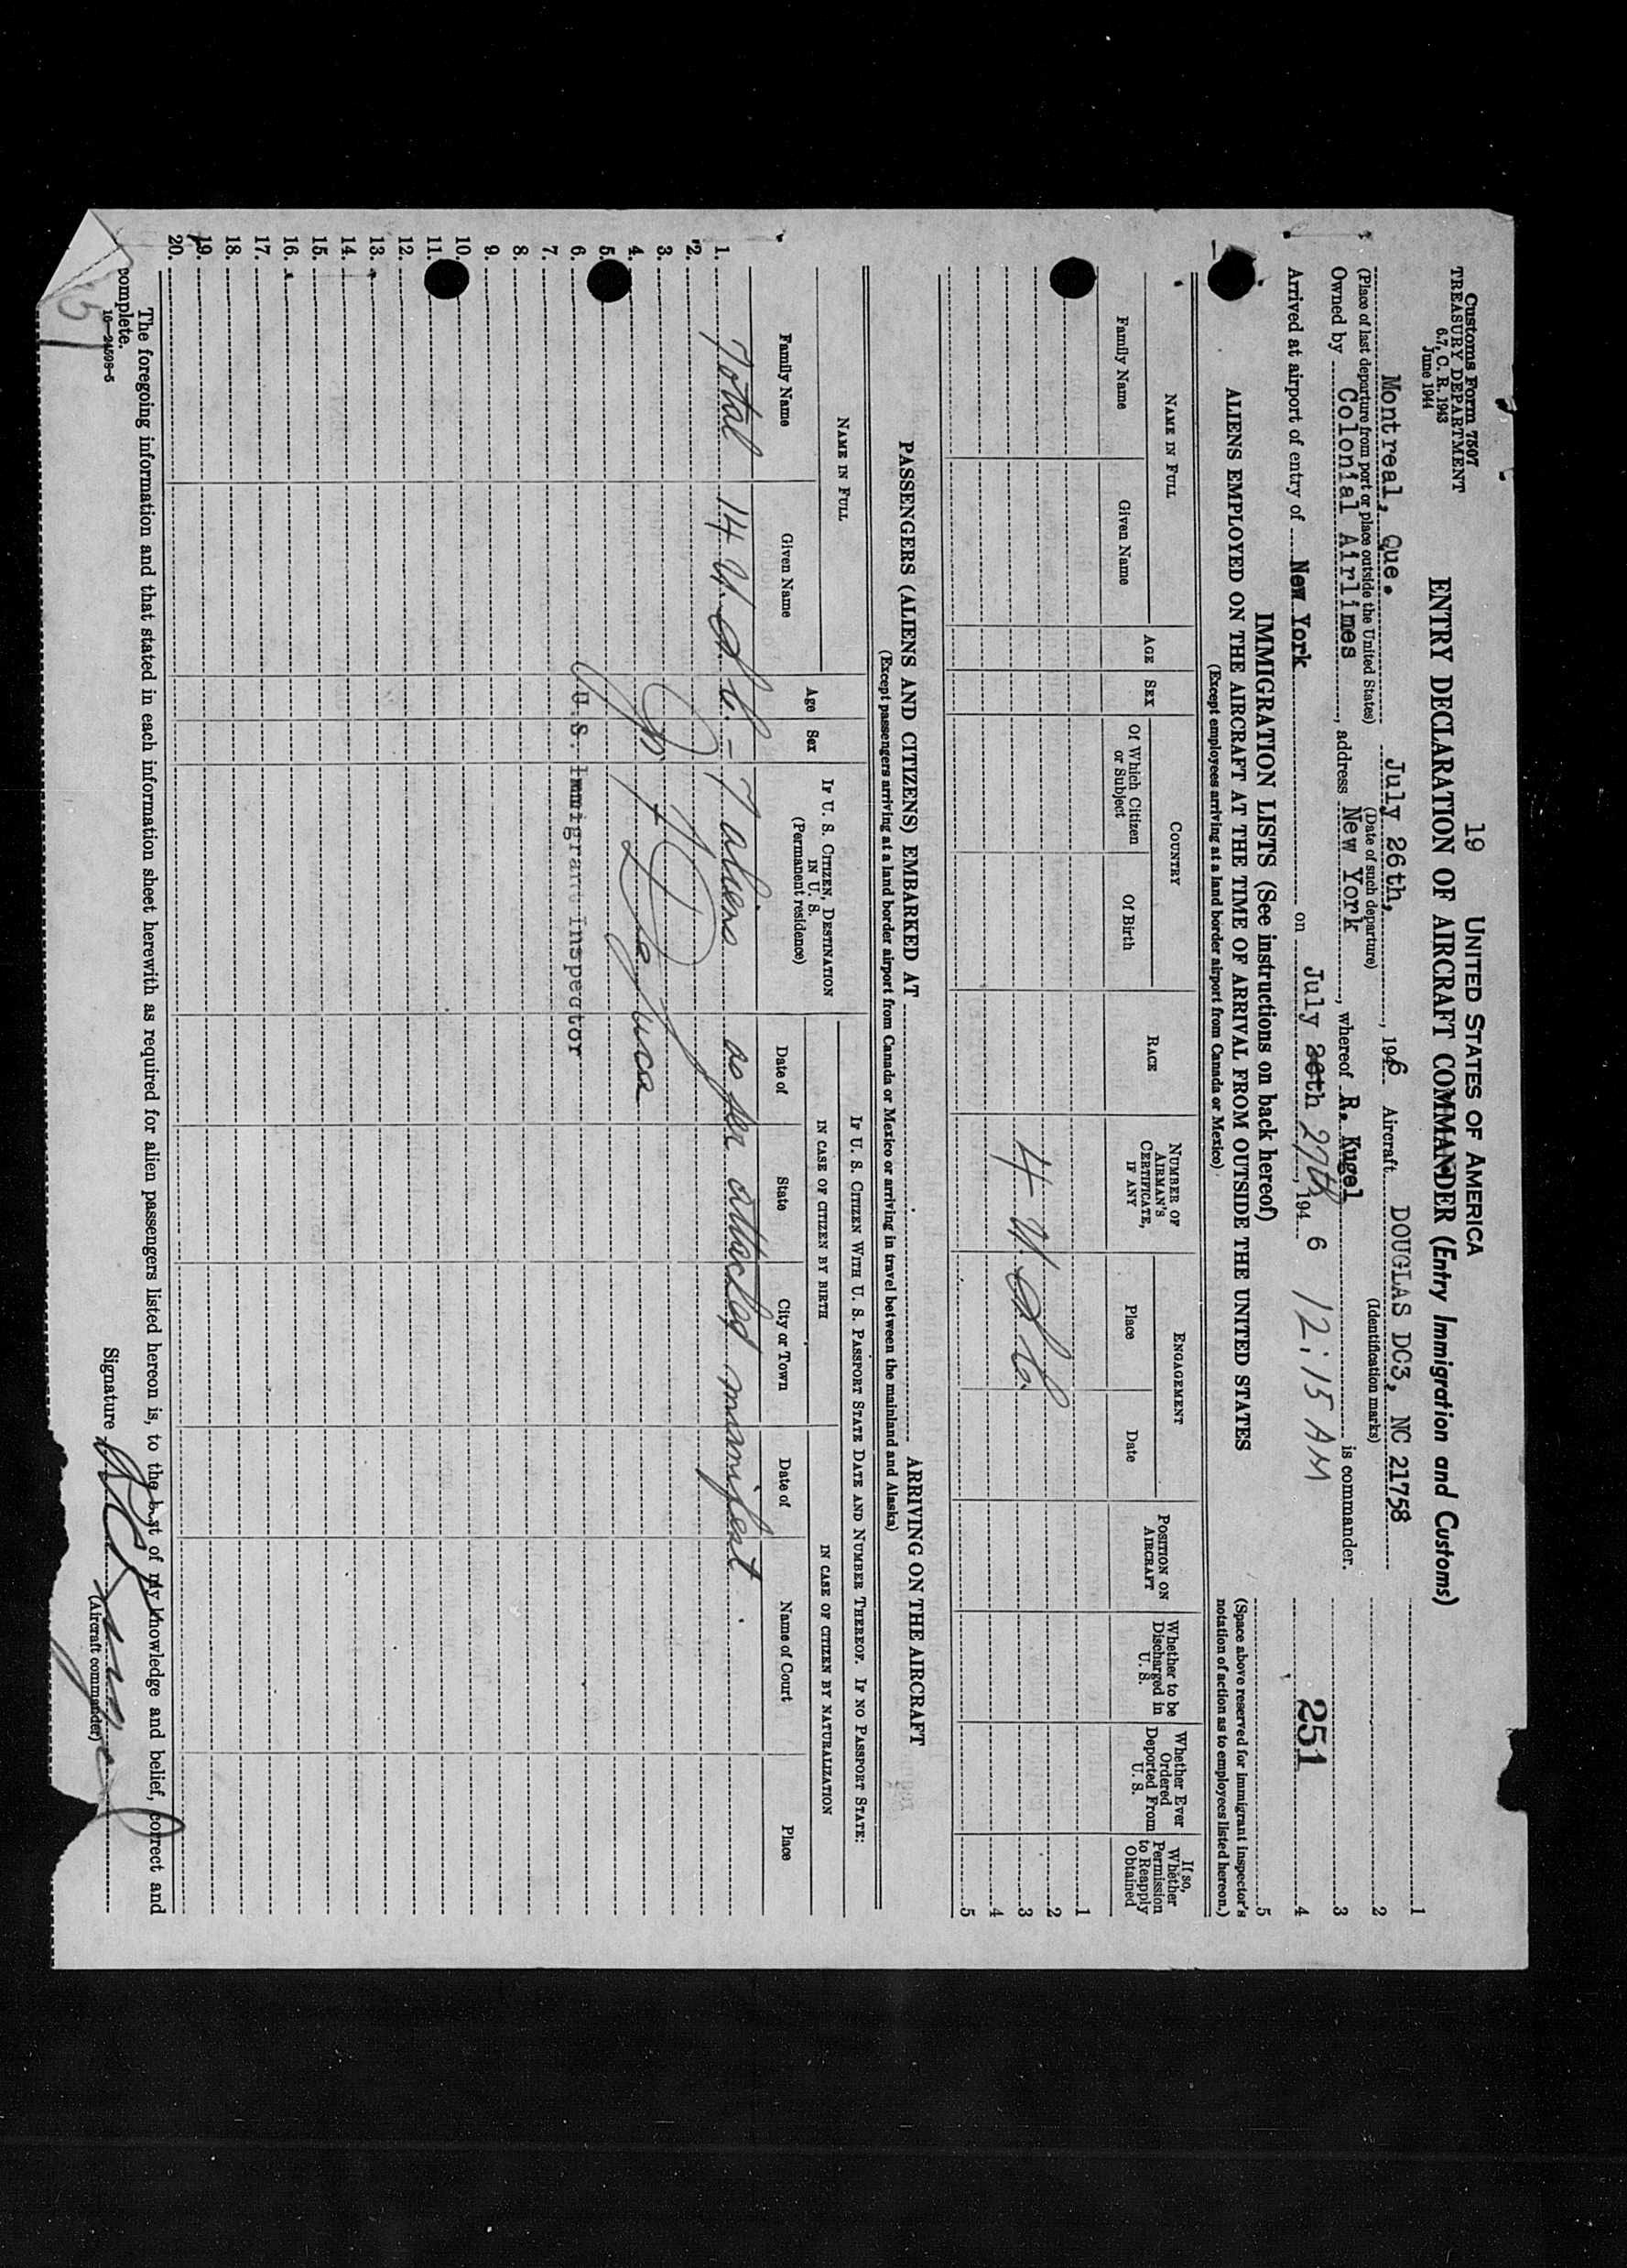 Customs Form 7507
TREASURY DEPARTMENT
6.7, C. R. 1943
June 1944
19 UNITED STATES OF AMERICA
ENTRY DECLARATION OF AIRCRAFT COMMANDER (Entry Immigration and Customs)
Montreal, Que. July 26th, 1946 Aircraft DOUGLAS DC3, NC 21758
(Place of last departure from port or place outside the United States) (Date of such departure) (Identification marks)
Owned by Colonial Airlines, address New York, whereof R. Kugel is commander.
Arrived at airport of entry of New York on July 26th 27th, 194 6 12:15 AM
1
2
3
251 4
5
(Space above reserved for immigrant inspector's notation of action as to employees listed hereon.)
IMMIGRATION LISTS (See instructions on back hereof)
ALIENS EMPLOYED ON THE AIRCRAFT AT THE TIME OF ARRIVAL FROM OUTSIDE THE UNITED STATES
(Except employees arriving at a land border airport from Canada or Mexico)
NAME IN FULL
Family Name Given Name
AGE
SEX
COUNTRY
Of Which Citizen or Subject Of Birth
RACE
NUMBER OF AIRMAN'S CERTIFICATE, IF ANY
ENGAGEMENT
Place Date
POSITION ON AIRCRAFT
Whether to be Discharged in U. S.
Whether Ever Ordered Deported From U. S.
If so, Whether Permission to Reapply Obtained
1
2
4 U.S.C. 3
4
5
PASSENGERS (ALIENS AND CITIZENS) EMBARKED AT ARRIVING ON THE AIRCRAFT
(Except passengers arriving at a land border airport from Canada or Mexico or arriving in travel between the mainland and Alaska)
NAME IN FULL
Family Name Given Name
Age Sex
IF U. S. CITIZEN, DESTINATION IN U. S.
(Permanent residence)
IF U. S. CITIZEN WITH U. S. PASSPORT STATE DATE AND NUMBER THEREOF. IF NO PASSPORT STATE:
IN CASE OF CITIZEN BY BIRTH IN CASE OF CITIZEN BY NATURALIZATION
Date of State City or Town Date of Name of Court Place
1. Total 14 U.S.C. - 7 aliens as per attached manifest.
2.
3.
4.
5.
6. U.S. Immigrant Inspector
7.
8.
9.
10.
11.
12.
13.
14.
15.
16.
17.
18.
19.
20.
The foregoing information and that stated in each information sheet herewith as required for alien passengers listed hereon is, to the best of my knowledge and belief, correct and
complete.
16—24598-5
Signature
(Aircraft commander)